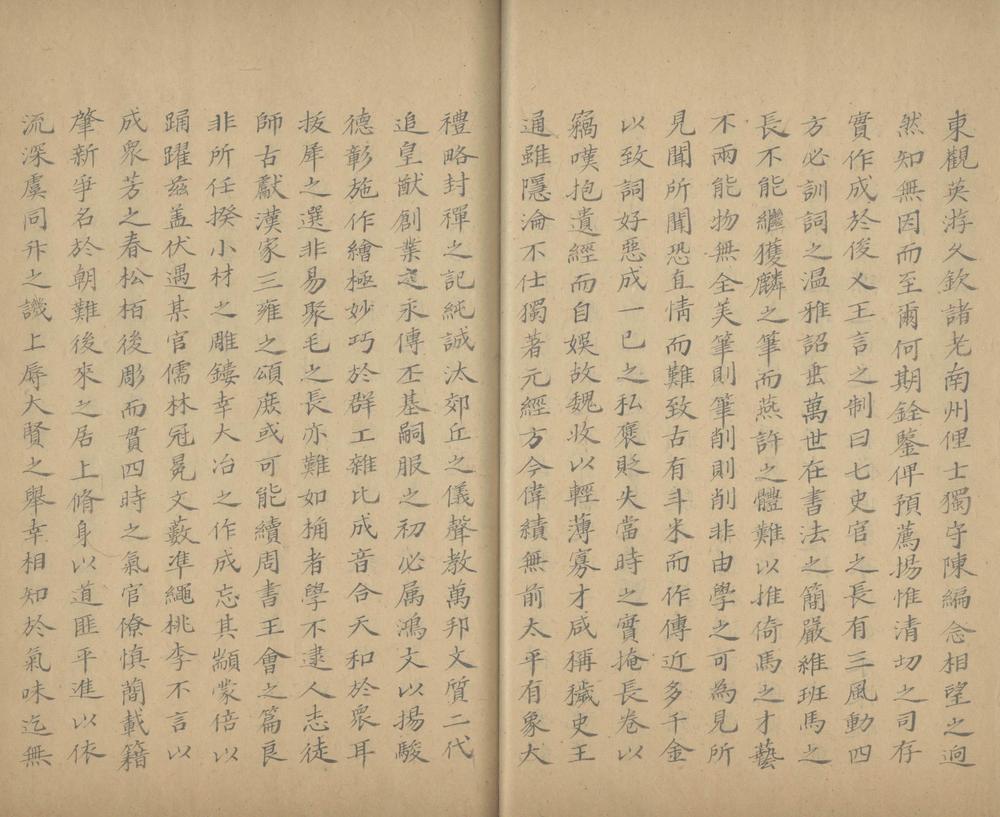 東觀英游久欽諸老南州俚士獨守陳編念相望之迥
然知無因而至爾何期銓鑒俾預薦揚惟清切之司存
實作成於後乂王言之制曰七史官之長有三風動四
方必訓詞之温雅詔垂萬世在書法之簡嚴維班馬之
長不能繼獲麟之筆而燕許之體難以推倚馬之才藝
不兩能物無全美筆則筆削則削非由學之可為見所
見聞所聞恐直情而難致古有斗米而作傳近多千金
以致詞好惡成一已之私襃貶失當時之實掩長卷以
竊嘆抱遺經而自娱故魏收以輕薄寡才咸稱穢史王
通雖隱淪不仕獨著元經方今偉績無前太平有象大
禮略封禪之記純誠汰郊丘之儀聲教萬邦文質二代
追皇猷創業之永傳丕基嗣服之初必属鴻文以揚駿
德彰施作繪極妙巧於群工雜比成音合天和於衆耳
拔犀之選非易聚毛之長亦難如桷者學不逮人志徒
師古獻漢家三雍之頌庶或可能續周書王會之篇良
非所任揆小材之雕鏤幸大冶之作成忘其顓蒙倍以
踊躍茲盖伏遇某官儒林冠冕文藪凖繩桃李不言以
成衆芳之春松栢後彫而貫四時之氣官僚慎蕳載籍
肇新爭名於朝難後來之居上脩身以道匪平進以依
流深虞同升之譏上辱大賢之舉幸相知於氣味迄無